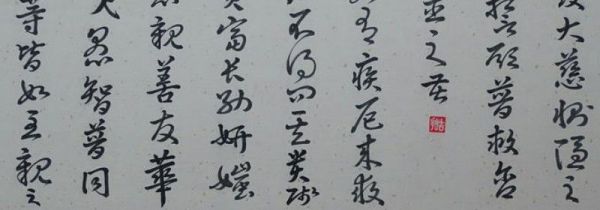 發大慈惻隱之
誓願普救含
之苦
有疾厄來救
不得問其貴賤
富長幼妍媸
親善友華
愚智普同
等皆如至親之